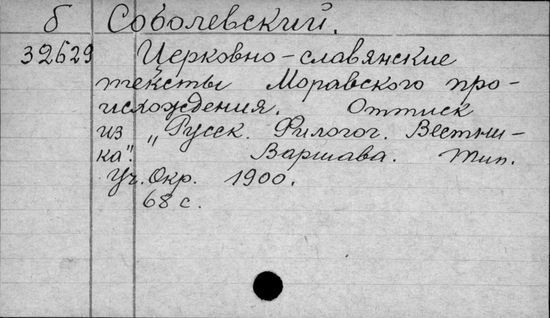 б Соболевский.
32629 Церковно-славянские
тексты Моравского про-
исхождения. Оттиск
из „Русск. Филогог. Вестни-
ка". Варшава. Тип.
Уч. Окр. 1900.
68 с.